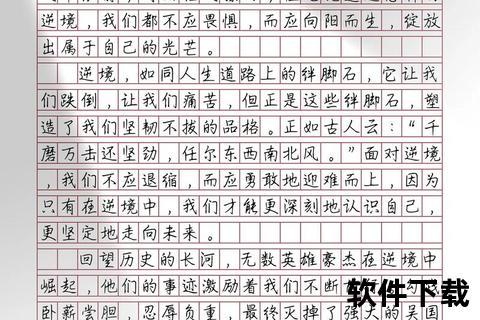 逆境，我们都不应畏惧，而应向阳而生，绽放
出属于自己的光芒。
逆境，如同人生道路上的绊脚石，它让我
们跌倒，让我们痛苦，但正是这些绊脚石，塑
造了我们坚韧不拔的品格。正如古人云：“千
磨万击还坚劲，任尔东西南北风。”面对逆境
，我们不应退缩，而应勇敢地迎难而上，因为
只有在逆境中，我们才能更深刻地认识自己，
更坚定地走向未来。
回望历史的长河，无数英雄豪杰在逆境中
崛起，他们的事迹激励着我们不断
卧薪尝胆，忍辱负重，最终灭掉了强大的吴国
软件下载